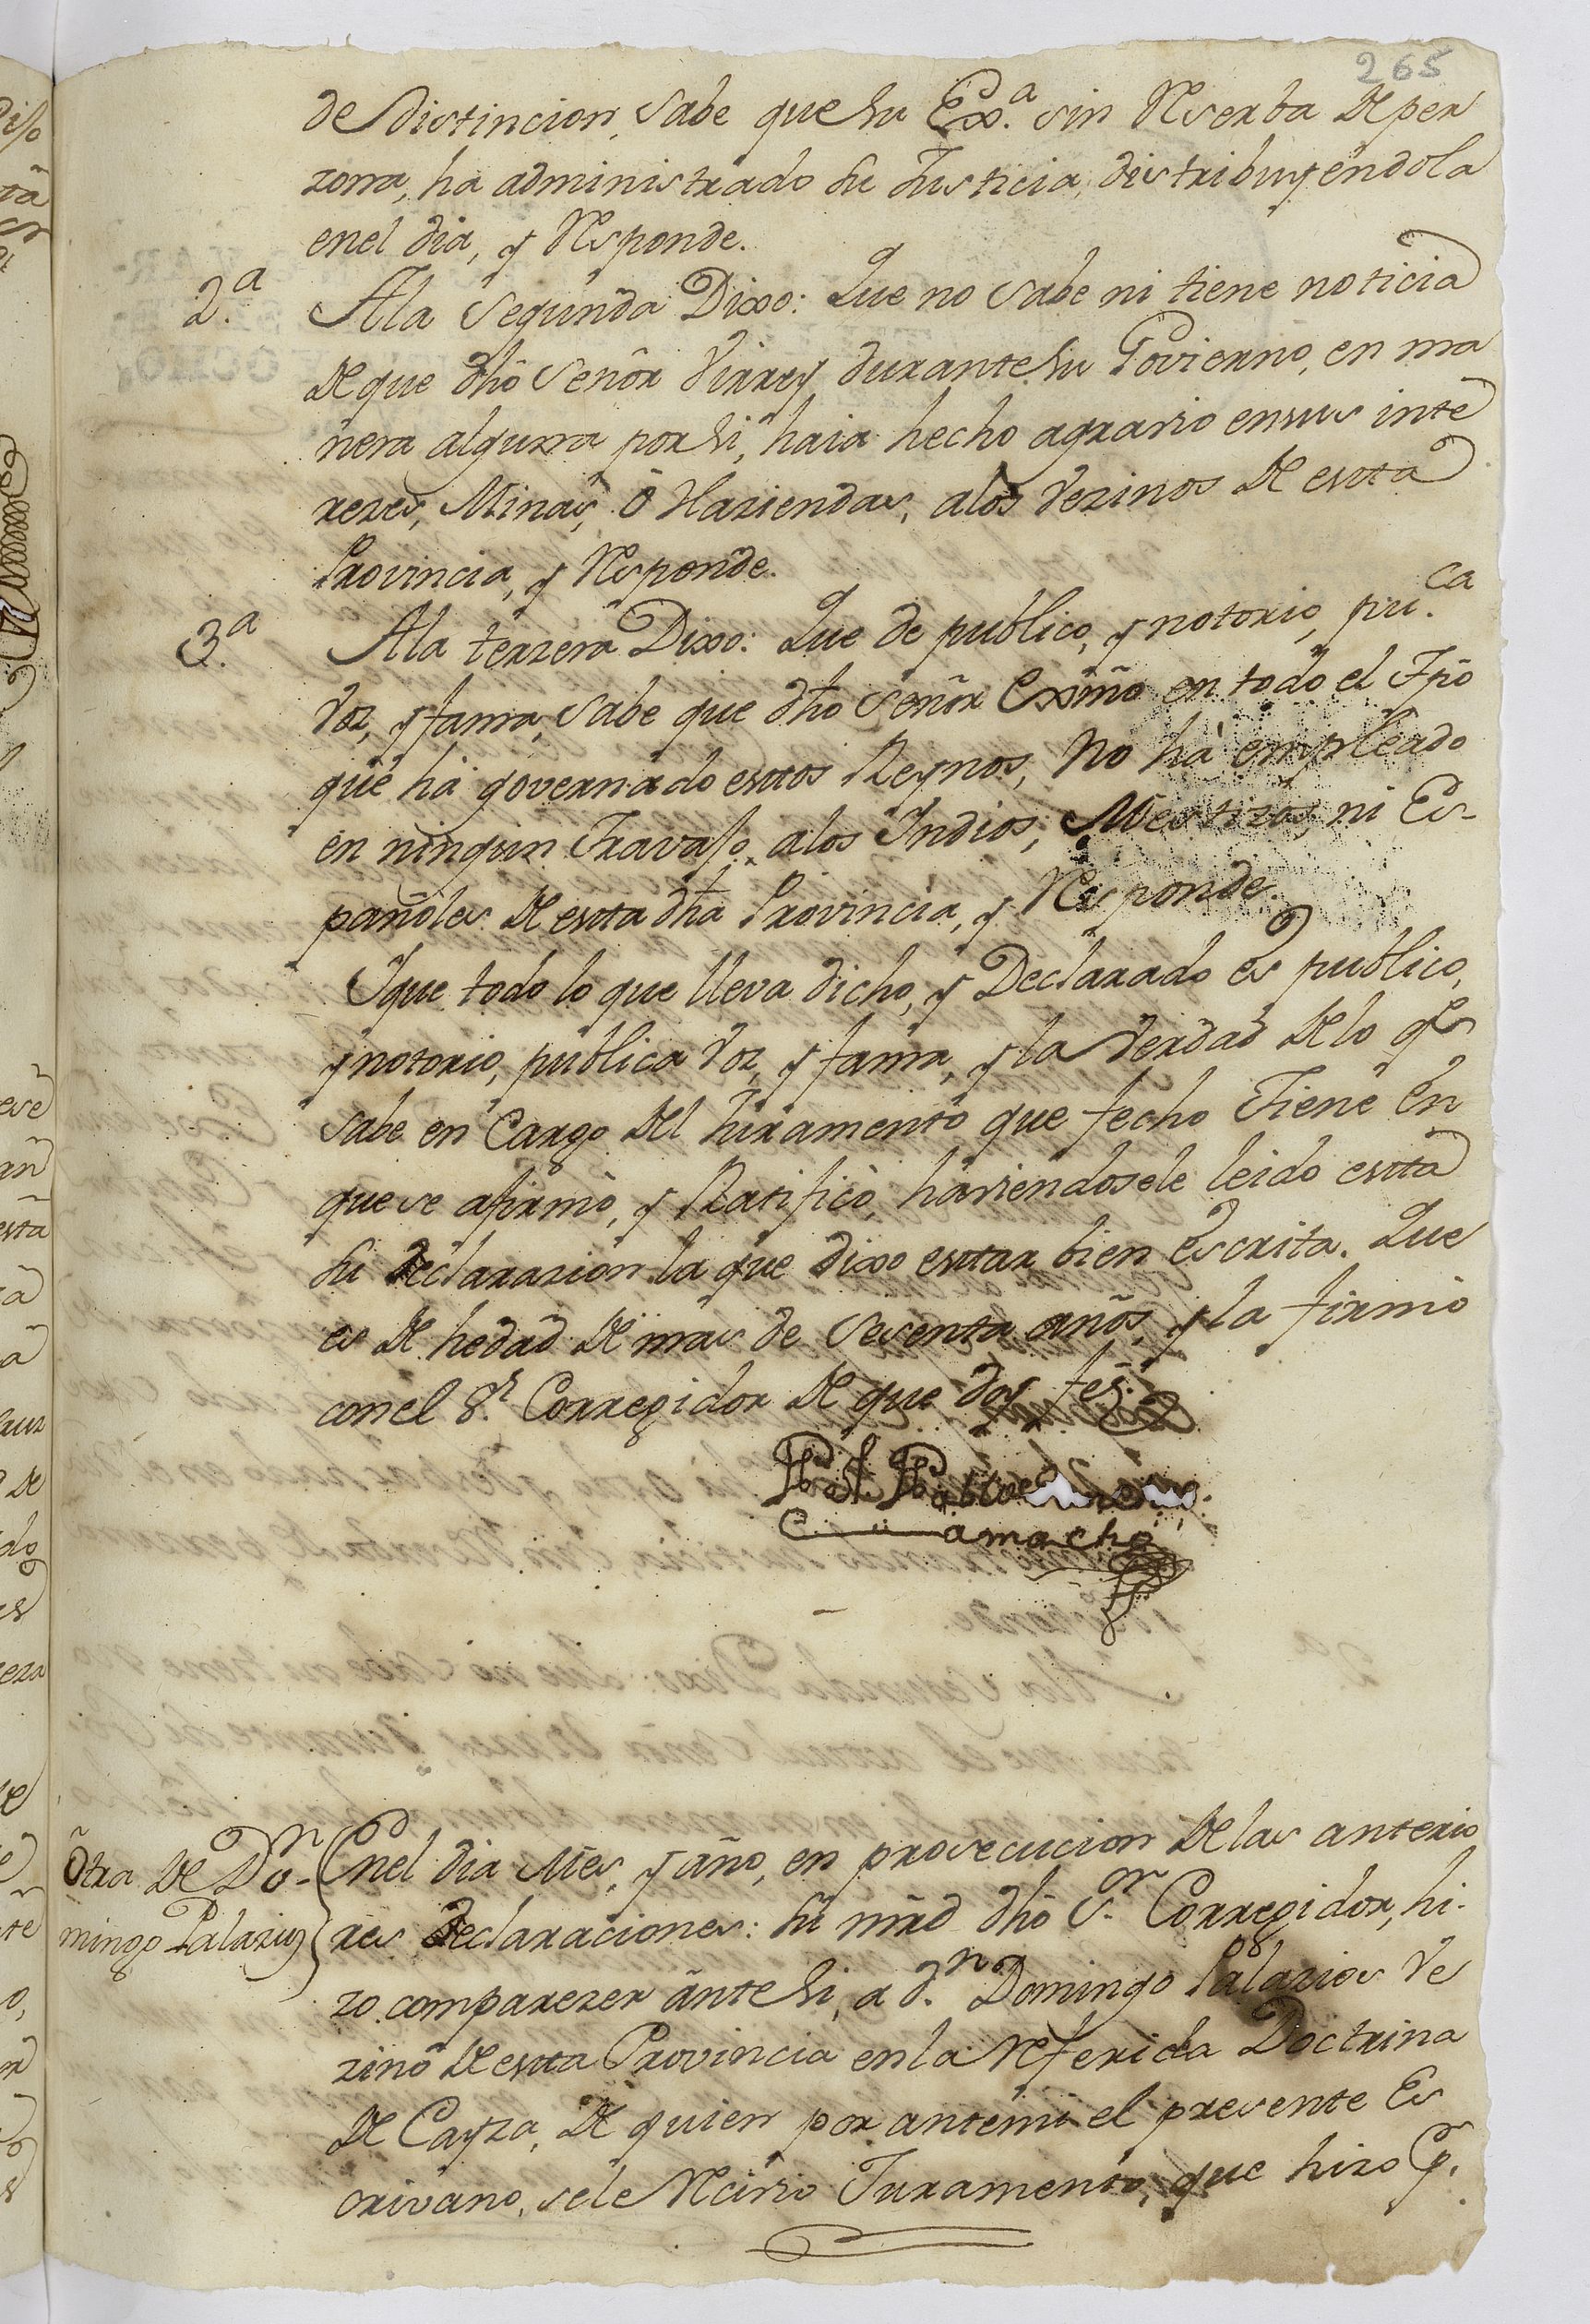 265
de distincion, sabe que su Exᵃ. sin Reserba de per
zona, ha administrado su Justicia, distribuyendola
enel dia, y Responde.
2.ᵃ Ala Segunda Dixo: Que no sabe ni tiene noticia
de que dho Señor Virrey durante su Govierno, en ma
nera alguna por si, haia hecho agravio ensus inte
rezes, Minas, ô Haziendas, alos Vezinos de esta
Provincia, y Responde.
3.ᵃ Ala terzera Dixo: Que de publico, y notorio, pu.ᶜᵃ
Voz, y fama, sabe que dho Señor Exmo en todo el Tpõ
que há governado estos Reynos, No há empleado
en ningun Travajo alos Indios, Mestizos, ni Es-
pañoles de esta dha Provincia, y Responde.
Yque todo lo que lleva dicho, y Declarado es publico,
ynotorio, publica Voz, y fama, y la Verdad de lo qᵉ
sabe en Cargo del Juramento que fecho Tiene En
que se afirmò, y Ratificò, haviendosele leido esta
su declarazion la que dixo estar bien Escrita. Que
es de hedad de mas de Sesenta años, y la firmò
conel Sʳ. Corregidor de que doy feè.
Pablo
Camacho
Otra de Dⁿ Do-
mingo Palazios
Enel dia Mes, y año, en prosecucion de las anterio
res declaraciones: su mrd dho Sʳ. Corregidor, hi-
zo comparezer ante si, a dⁿ. Domingo Palazios Ve
zino de esta Provincia enla Referida Doctrina
de Cayza, de quien por antemi el presente Es
crivano, sele Recivio Juramento, que hizo p.